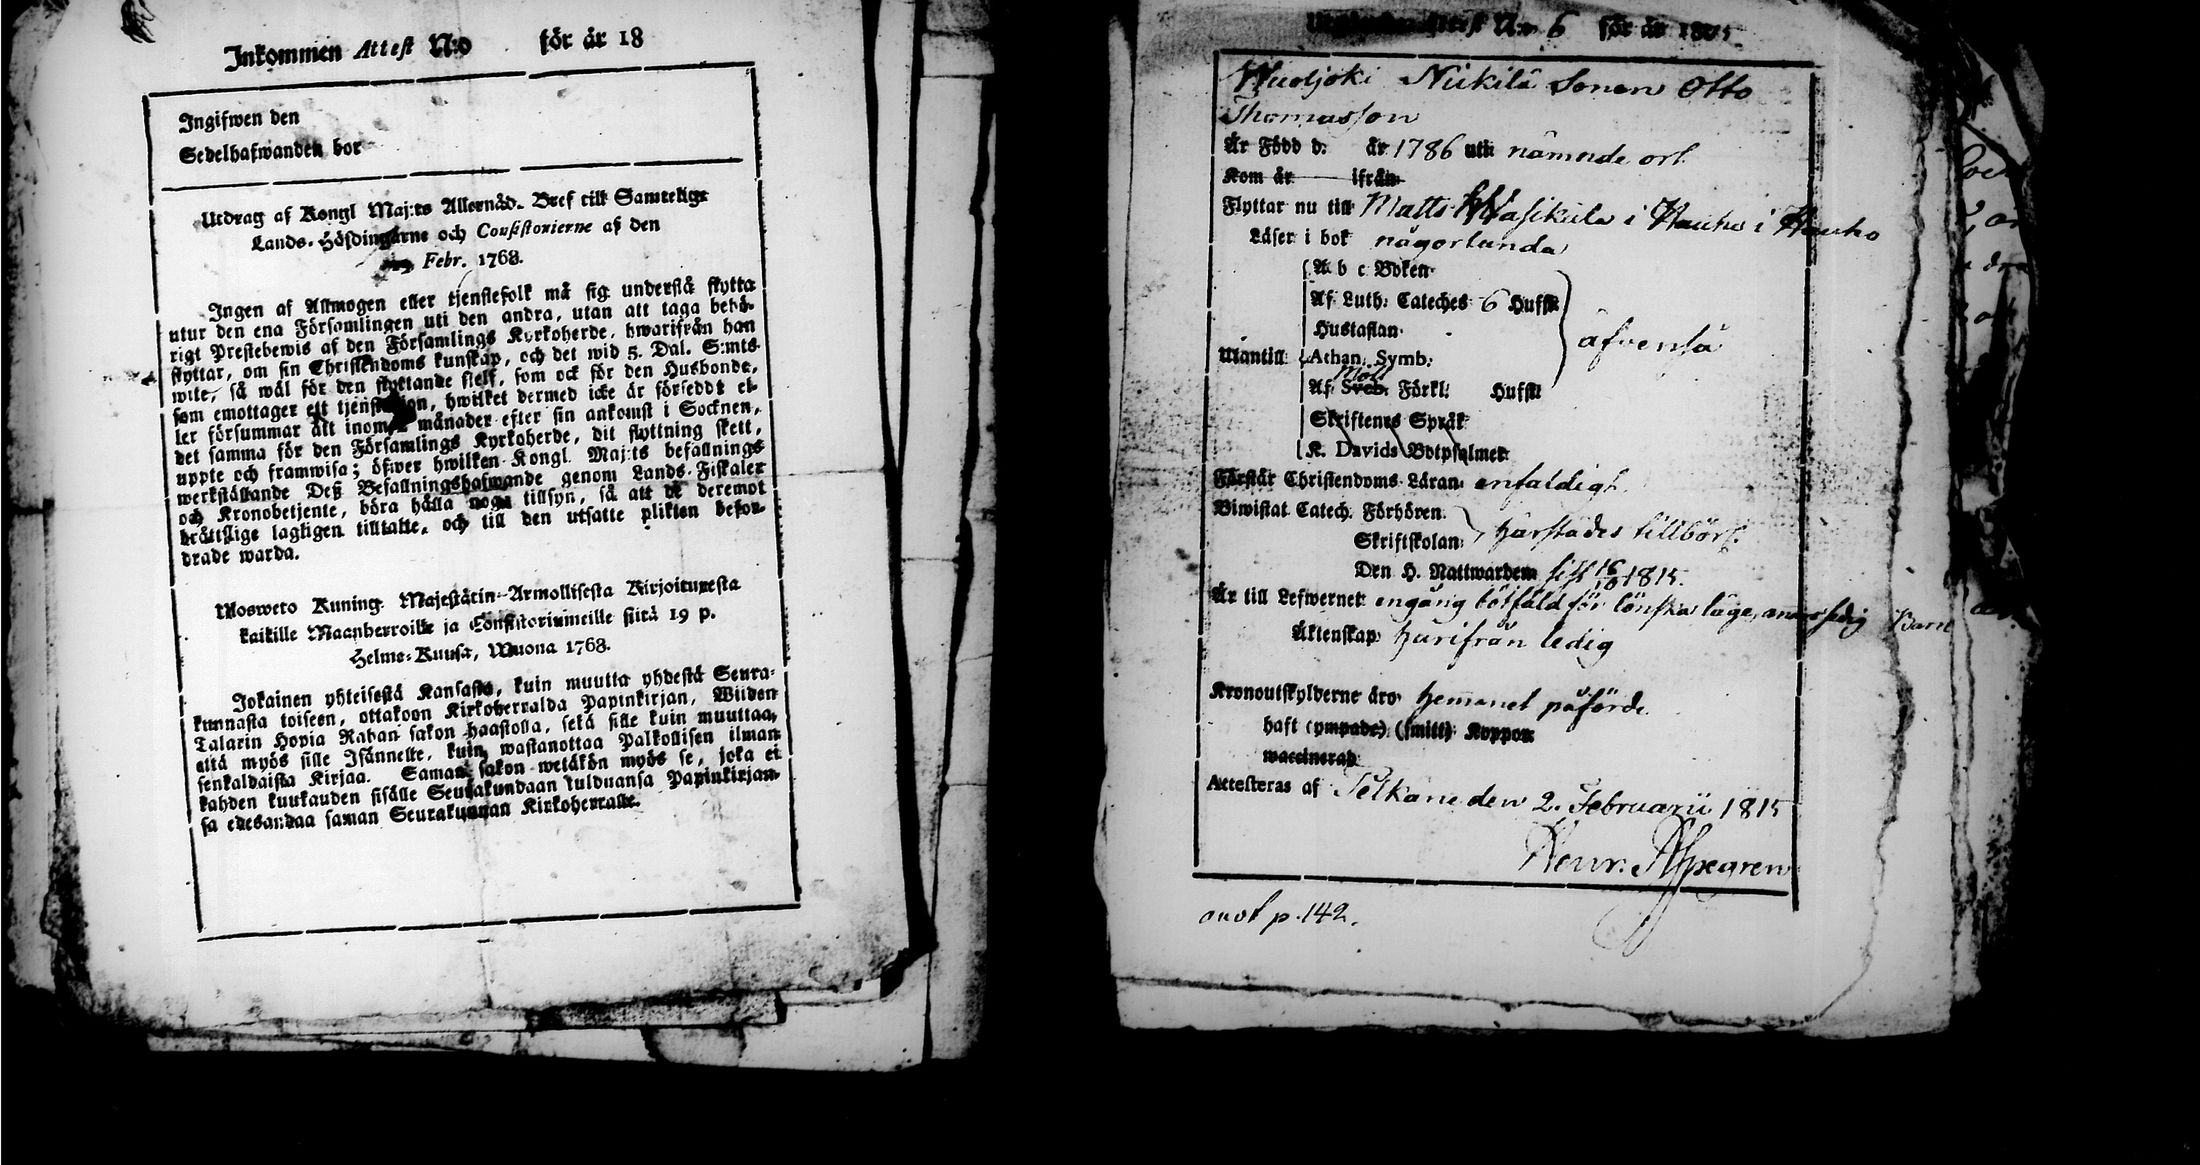 Inkommen Attest N:o för år 18
Ingifwen den
Sedelhafwanden bor
Utdrag af Kongl Maj:ts Allernåd. Bref till Samtelige
Lands-Höfdingarne och Consistorierne af den
Febr. 1768.
Ingen af Allmogen eller tjenstefolk må sig understå flytta
utur den ena Församlingen uti den andra, utan att taga behö-
rigt Prestebewis af den Församlings Kyrkoherde, hwarifrån han
flyttar, om sin Christendoms kunskap, och det wid 5. Dal. S:mts
wite, så wäl för den flyttande sielf, som ock för den Husbonde,
som emottager ett tjenstehjon, hwilket dermed icke är förseddt el-
ler försummar att inom månader efter sin ankomst i Socknen,
det samma för den Församlings Kyrkoherde, dit flyttning skett,
uppte och framwisa; öfwer hwilken Kongl Maj:ts befallnings
werkställande Deß Befallningshafwande genom Lands-Fiskaler
och Kronobetjente, böra hålla noga tillsyn, så att de deremot
bråttslige lagligen tilltalte, och till den utsatte plikten befor-
drade warda.
Ulosweto Kuning. Majestätin Armollisesta Kirjoituxesta
kaikille Maanherroille ja Consistoriumeille siitä 19 p.
Helme-Kuusa, Wuona 1768.
Jokainen yhteisestä Kansasta, kuin muutta yhdestä Seura-
kunnasta toiseen, ottakoon Kirkoherralda Papinkirjan, Wiiden
Talarin Hopia Rahan sakon haastolla, sekä sille kuin muuttaa,
että myös sille Isännelle, kuin wastanottaa Palkollisen ilman
senkaldaista Kirjaa. Saman sakon wetäkön myös se, joka ei
kahden kuukauden sisälle Seurakundaan tulduansa Papinkirjan-
sa edesandaa saman Seurakunnan Kirkoherralle.
Attest N:o 6 för år 1815
Wuoljoki Niikilä Sonen Otto
Thomasson
Är Född d. år 1786 uti nämnde ort
Kom år ifrån
Flyttar nu till Matts Wasikula i Hauho i Hauho
Läser i bok någorlunda
A b c Boken
Af Luth: Cateches 6 Hufst:
Hustaflan
åfvensä
Utantill: Athan. Symb:
Möll
Af Sveb. Förkl: Hufst:
Skriftenes Språk
K. Davids Botpsalmer
Förstår Christendoms Läran: enfaldigt
Biwistat Catech. Förhören
Skriftskolan: härstädes tillbörl.
Den H. Nattwarden sist 16/10 1815.
Är till Lefwernet engång bötfäld för lönska läge, annars sedig
Barn
Äktenskap härifrån ledig
Kronoutskylderne äro hemmanet påförde
haft (ympade) (smitt) Koppor
waccinerad
Attesteras af Pelkäne den 2. Februarii 1815
Henr. Aspegren
p. 142.